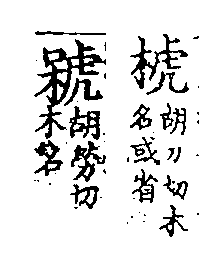 椃
胡刀切木
名或省
胡勞切
木名